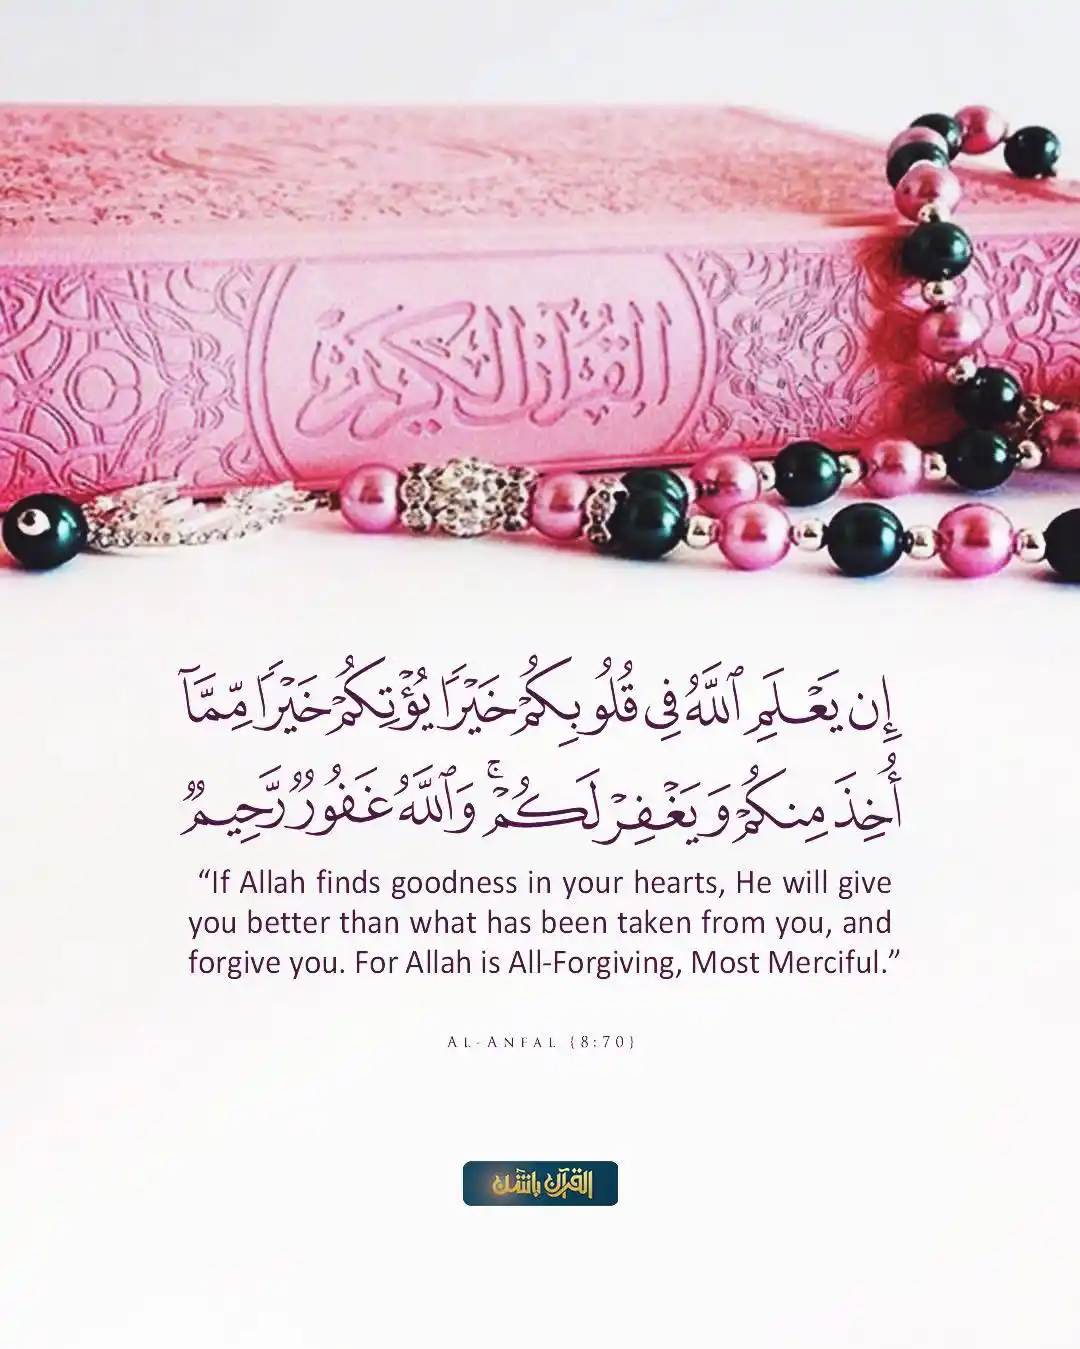 القرآن الكريم
إِن يَعْلَمِ ٱللَّهُ فِى قُلُوبِكُمْ خَيْرًا يُؤْتِكُمْ خَيْرًا مِّمَّآ
أُخِذَ مِنكُمْ وَيَغْفِرْ لَكُمْ ۚ وَٱللَّهُ غَفُورٌ رَّحِيمٌ
“If Allah finds goodness in your hearts, He will give
you better than what has been taken from you, and
forgive you. For Allah is All-Forgiving, Most Merciful.”
AL-ANFAL {8:70}
القرآن